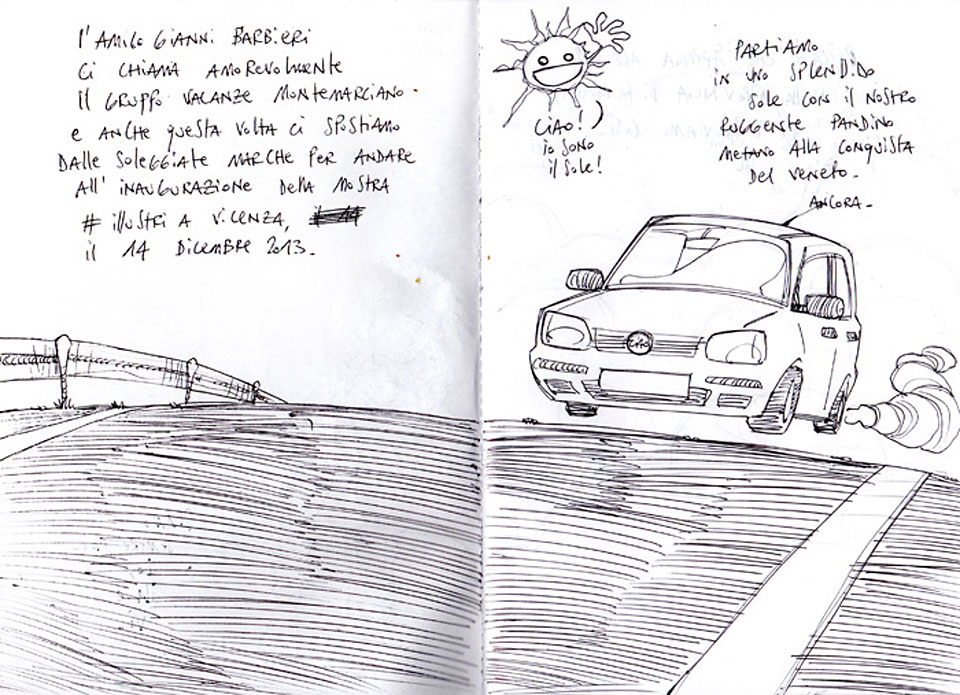 L'AMICO GIANNI BARBIERI
CI CHIAMA AMOREVOLMENTE
IL GRUPPO VACANZE MONTEMARCIANO.
E ANCHE QUESTA VOLTA CI SPOSTIAMO
DALLE SOLEGGIATE MARCHE PER ANDARE
ALL'INAUGURAZIONE DELLA MOSTRA
# ILLUSTRI A VICENZA,
IL 14 DICEMBRE 2013.
CIAO!
IO SONO
IL SOLE!
PARTIAMO
IN UNO SPLENDIDO
SOLE CON IL NOSTRO
RUGGENTE PANDINO
METANO ALLA CONQUISTA
DEL VENETO.
ANCORA.
CIAO